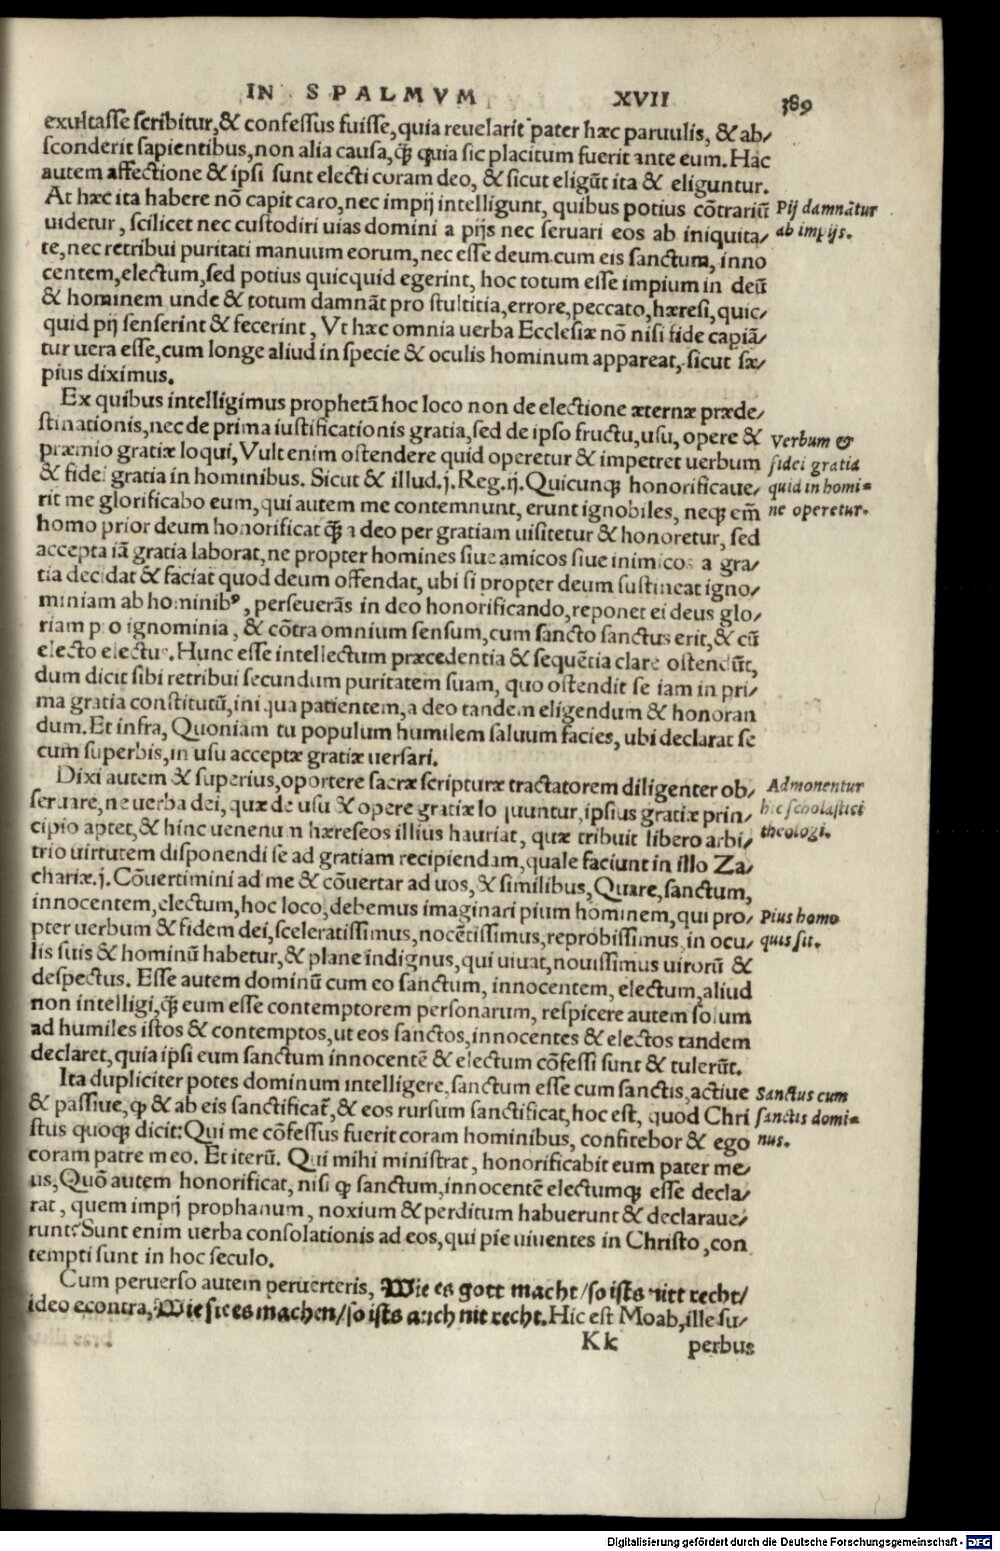 IN SPALMVM XVII 389
exultasse scribitur,& confessus fuisse,quia reuelarit pater hæc paruulis, & ab/
sconderit sapientibus,non alia causa,q̃ quia sic placitum fuerit ante eum.Hac
autem affectione & ipsi sunt electi coram deo, & sicut eligũt ita & eliguntur.
At hæc ita habere nõ capit caro,nec impij intelligunt, quibus potius cõtrariũ
uidetur, scilicet nec custodiri uias domini a pijs nec seruari eos ab iniquita/
te,nec retribui puritati manuum eorum,nec esse deum cum eis sanctum, inno
centem,electum,sed potius quicquid egerint, hoc totum esse impium in deũ
& hominem unde & totum damnãt pro stultitia,errore,peccato,hæresi,quic/
quid pij senserint & fecerint, Vt hæc omnia uerba Ecclesiæ nõ nisi fide capiã/
tur uera esse,cum longe aliud in specie & oculis hominum appareat, sicut sæ/
pius diximus.
Pij damnãtur
ab impijs.
Ex quibus intelligimus prophetã hoc loco non de electione æternæ præde/
stinationis,nec de prima iustificationis gratia,sed de ipso fructu,usu, opere &
præmio gratiæ loqui,Vult enim ostendere quid operetur & impetret uerbum
& fidei gratia in hominibus. Sicut & illud.j.Reg.ij.Quicunq; honorificaue/
rit me glorificabo eum,qui autem me contemnunt, erunt ignobiles, neq; em̃
homo prior deum honorificat q̃ a deo per gratiam uisitetur & honoretur, sed
accepta iã gratia laborat,ne propter homines siue amicos siue inimicos a gra/
tia decidat & faciat quod deum offendat, ubi si propter deum sustineat igno/
miniam ab hominibꝰ, perseuerãs in deo honorificando,reponet ei deus glo/
riam pro ignominia, & cõtra omnium sensum,cum sancto sanctus erit,& cũ
electo electus.Hunc esse intellectum præcedentia & sequẽtia clare ostendũt,
dum dicit sibi retribui secundum puritatem suam, quo ostendit se iam in pri/
ma gratia constitutũ,iniqua patientem,a deo tandem eligendum & honoran
dum.Et infra, Quoniam tu populum humilem saluum facies, ubi declarat se
cum superbis,in usu acceptæ gratiæ uersari.
Verbum &
fidei gratia
quid in homi=
ne operetur.
Dixi autem & superius,oportere sacræ scripturæ tractatorem diligenter ob/
seruare,ne uerba dei,quæ de usu & opere gratiæ loquuntur,ipsius gratiæ prin/
cipio aptet,& hinc uenenum hæreseos illius hauriat, quæ tribuit libero arbi/
trio uirtutem disponendi se ad gratiam recipiendam,quale faciunt in illo Za/
chariæ.j.Cõuertimini ad me & cõuertar ad uos,& similibus,Quare,sanctum,
innocentem,electum,hoc loco,debemus imaginari pium hominem,qui pro/
pter uerbum & fidem dei,sceleratissimus,nocẽtissimus,reprobissimus in ocu/
lis suis & hominũ habetur,& plane indignus,qui uiuat,nouissimus uirorũ &
despectus. Esse autem dominũ cum eo sanctum, innocentem, electum,aliud
non intelligi,q̃ eum esse contemptorem personarum, respicere autem solum
ad humiles istos & contemptos,ut eos sanctos,innocentes & electos tandem
declaret,quia ipsi eum sanctum innocentẽ & electum cõfessi sunt & tulerũt.
Admonentur
hic scholastici
theologi.
Pius homo
quis sit.
Ita dupliciter potes dominum intelligere,sanctum esse cum sanctis,actiue
& passiue,q̃ & ab eis sanctificat̃,& eos rursum sanctificat,hoc est, quod Chri
stus quoq; dicit:Qui me cõfessus fuerit coram hominibus, confitebor & ego
coram patre meo. Et iterũ. Qui mihi ministrat, honorificabit eum pater me/
us,Quõ autem honorificat, nisi q̃ sanctum,innocentẽ electumq; esse decla/
rat, quem impij prophanum, noxium & perditum habuerunt & declaraue/
runt?Sunt enim uerba consolationis ad eos,qui pie uiuentes in Christo,con
tempti sunt in hoc seculo.
Sanctus cum
sanctis domi=
nus.
Cum peruerso autem peruerteris, Wie es gott macht/so ists nitt recht/
ideo econtra, Wie sie es machen/so ists auch nit recht.Hic est Moab,ille su/
Kk perbus
Digitalisierung gefördert durch die Deutsche Forschungsgemeinschaft - DFG